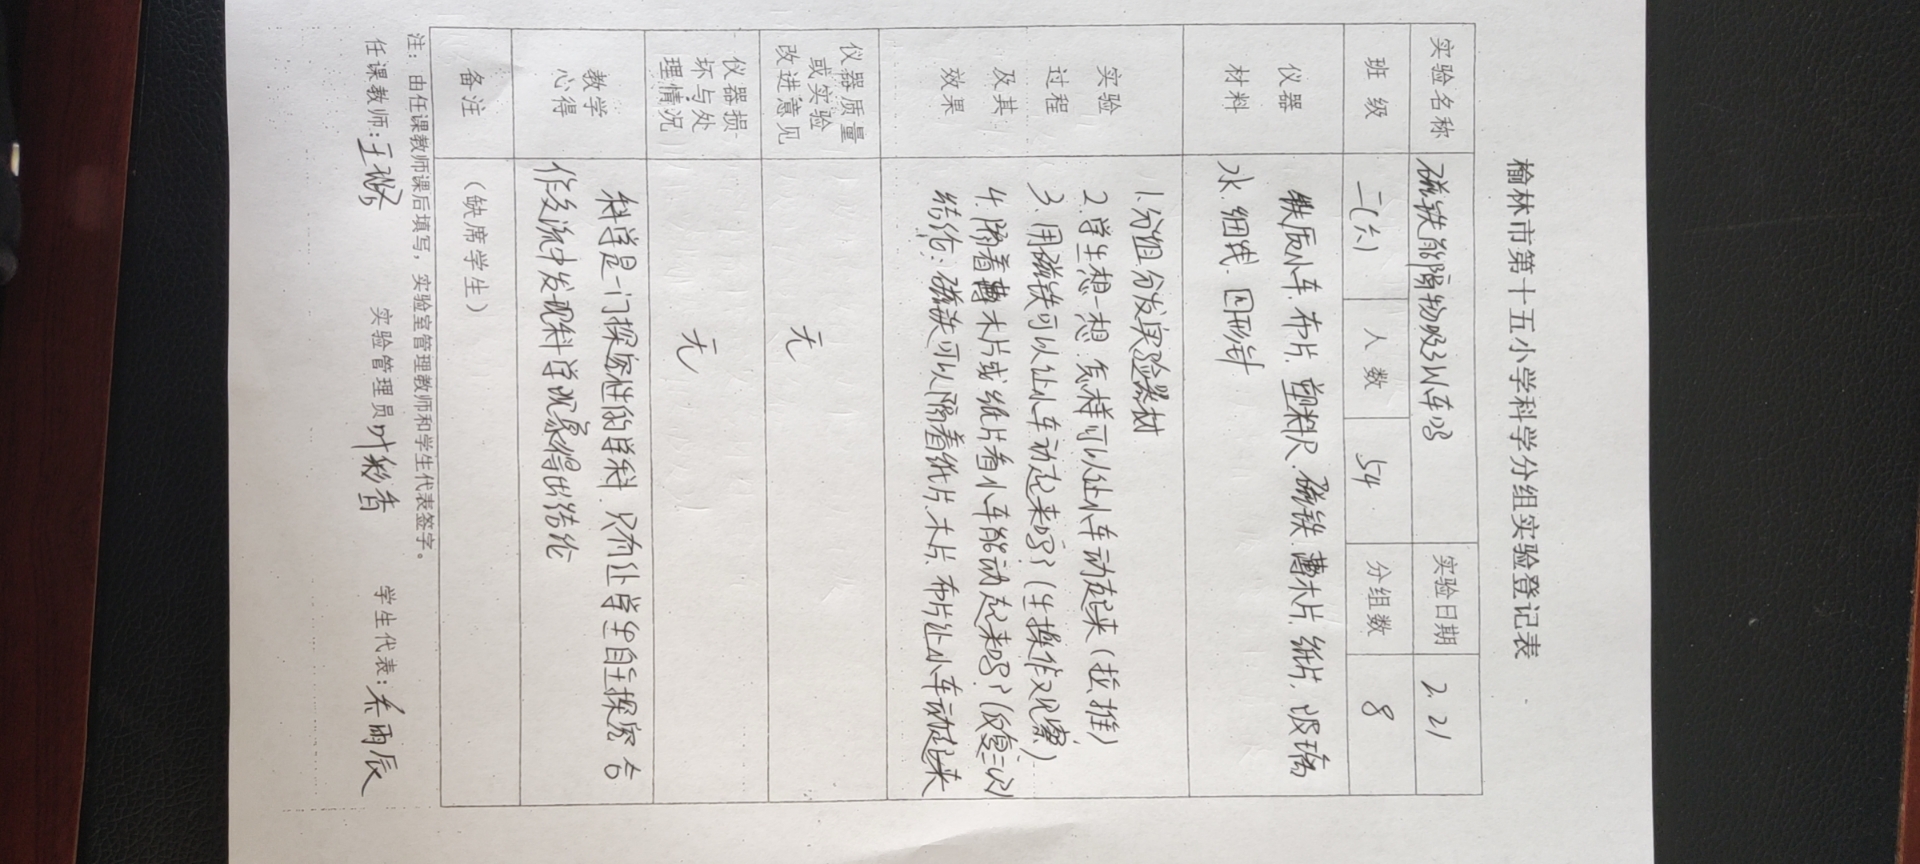 榆林市第十五小学科学分组实验登记表
实验名称 磁铁能隔物吸引小车吗 实验日期 2.21
班级 二(六) 人数 54 分组数 8
仪器材料 铁质小车.布片.塑料尺.磁铁.薄木片.纸片.玻璃
水.细线.回形针
实验过程及其效果 1.分组分发实验器材
2.学生想一想.怎样可以让小车动起来(拉,推)
3.用磁铁可以让小车动起来吗?(生操作又观察)
4.隔着薄木片或纸片看小车能动起来吗?(反复三次)
结论:磁铁可以隔着纸片.木片.布片让小车动起来
仪器质量或实验改进意见 无
仪器损坏与处理情况 无
教学心得 科学是一门探究性的学科.只有让学生自主探究 合
作交流中发现科学现象得出结论
备注 (缺席学生)
注:由任课教师课后填写,实验室管理教师和学生代表签字。
任课教师:王 实验管理员 叶彩香 学生代表:乔雨辰